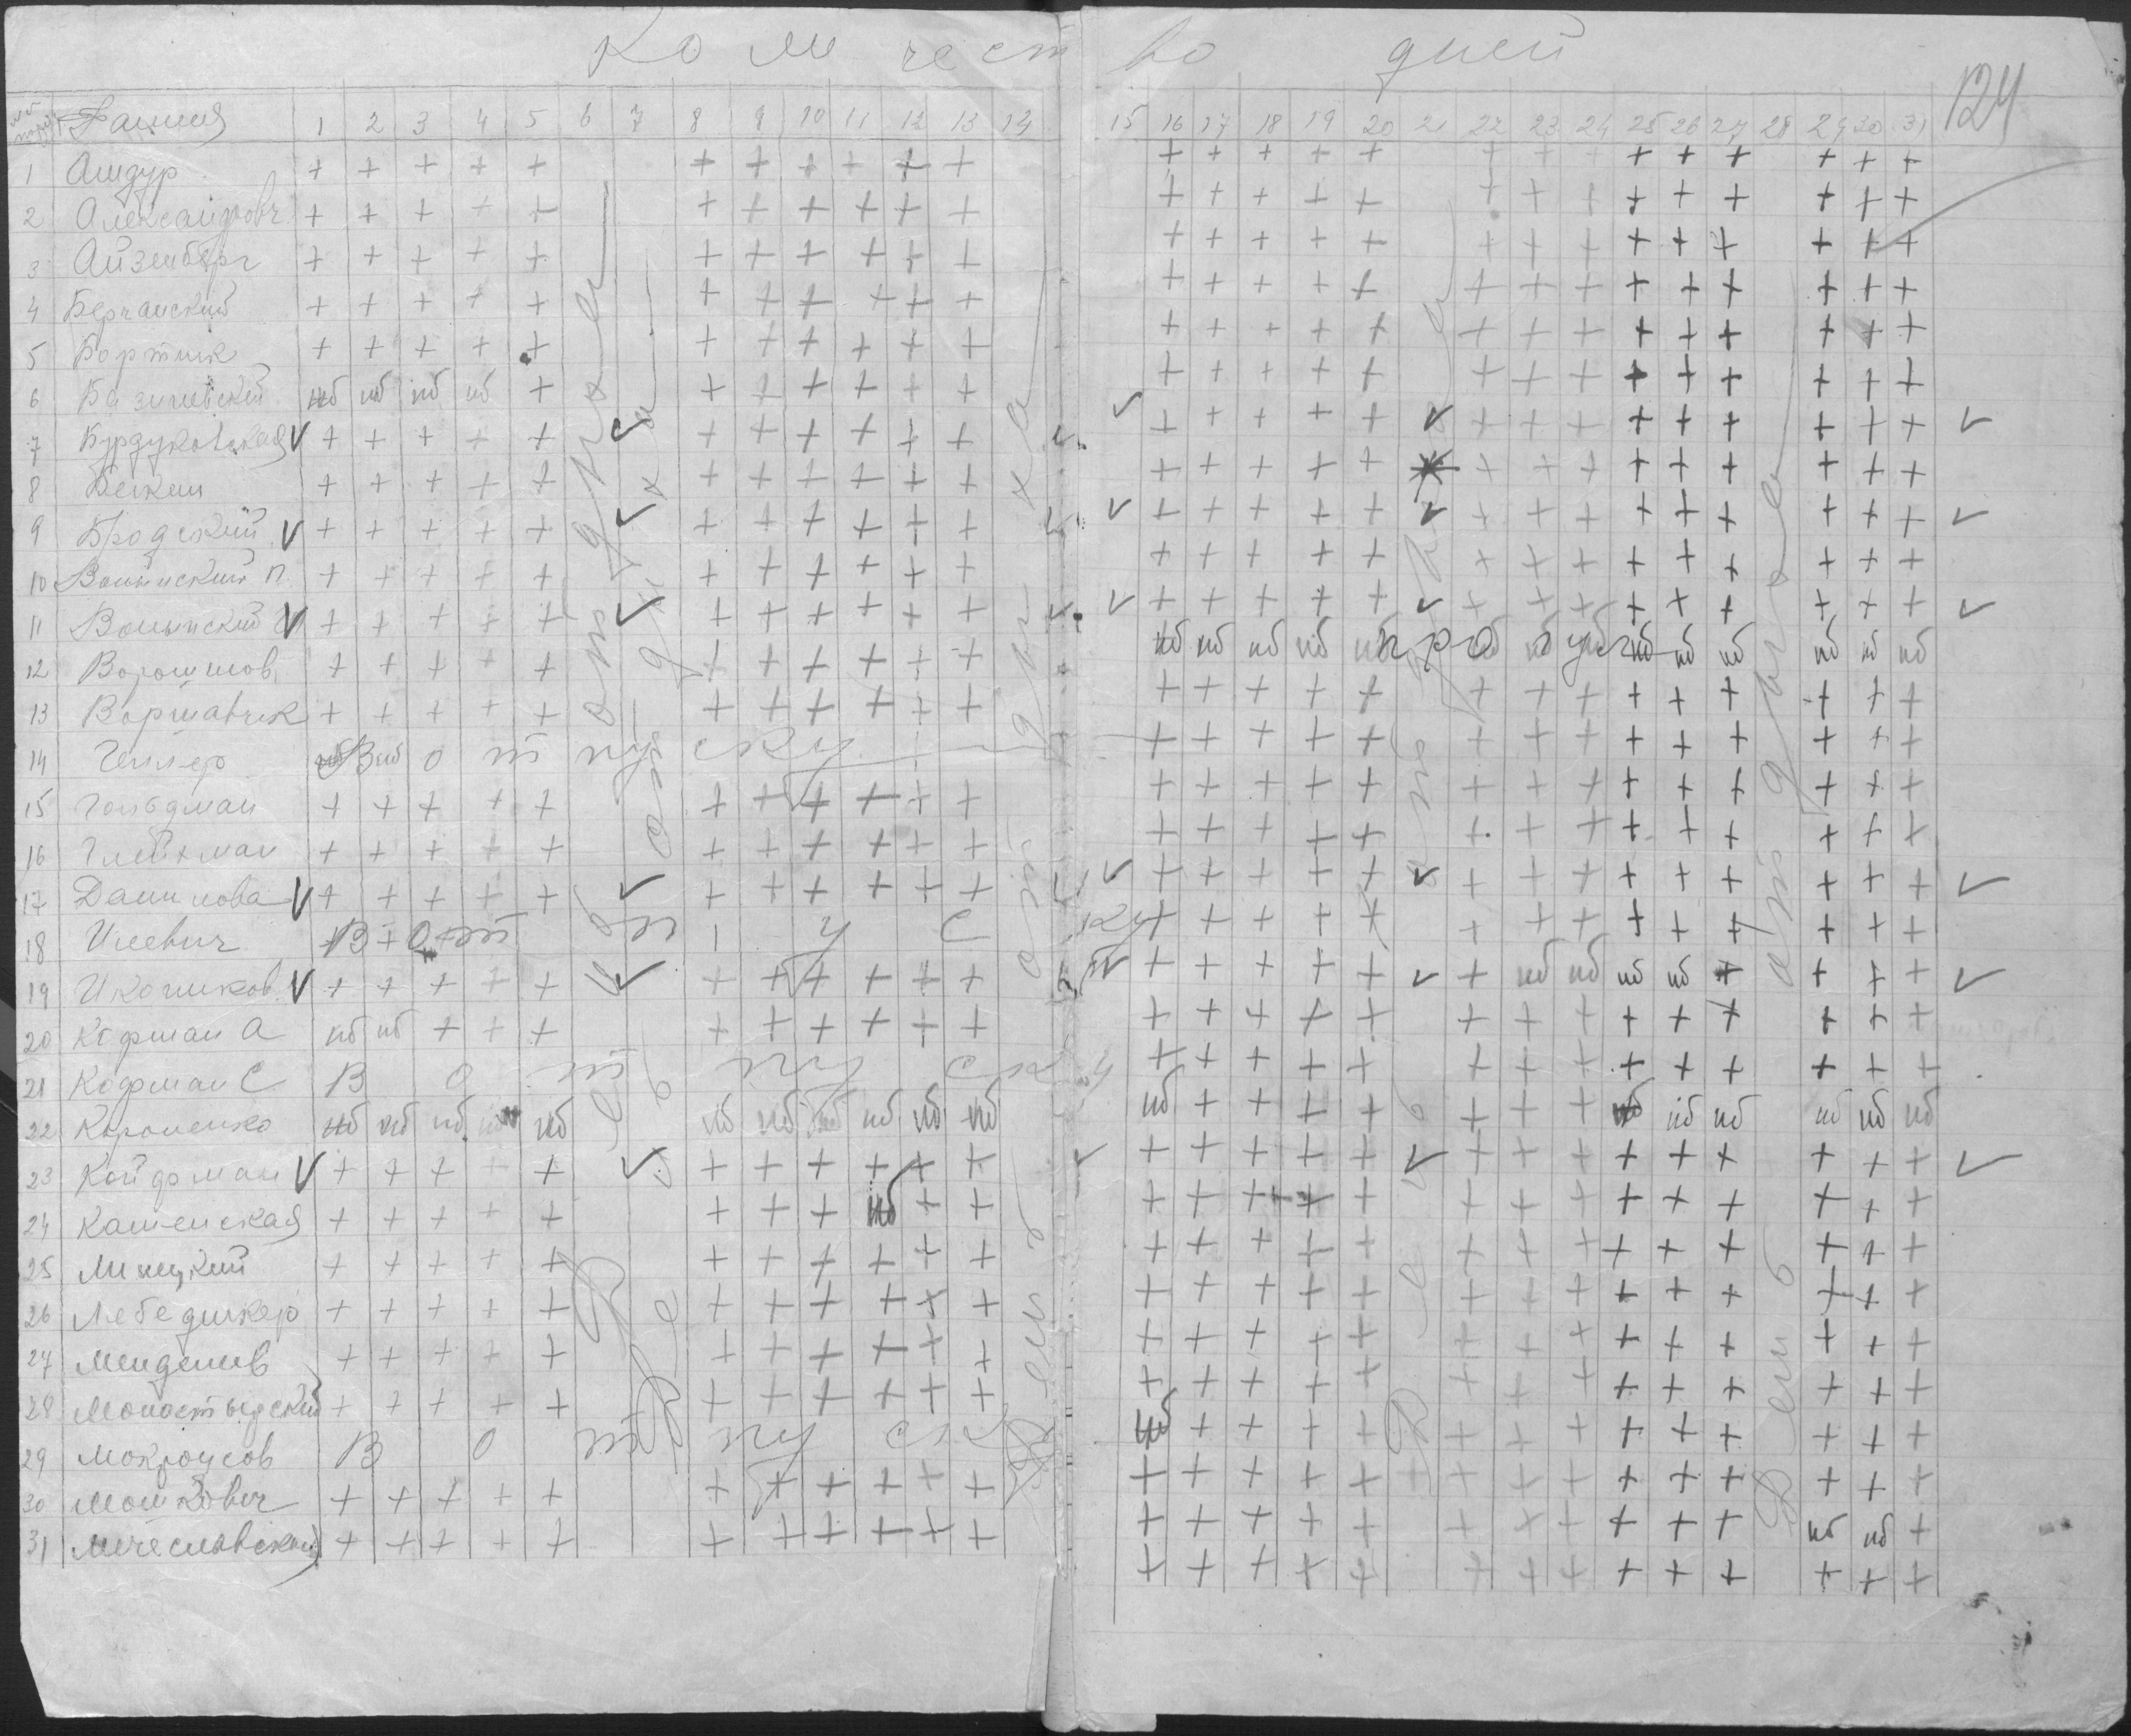 Количество дней
124
№ Фамилия 1 2 3 4 5 6 7 8 9 10 11 12 13 14 15 16 17 18 19 20 21 22 23 24 25 26 27 28 29 30 31
День отдыха
День отдыха
День отдыха
День отдыха
День отдыха
1 + + + + + + + + + + + + + + + + + + + + + + + + + +
2 Александрович + + + + + + + + + + + + + + + + + + + + + + + + +
3 Айзенберг + + + + + + + + + + + + + + + + + + + + + + + + +
4 Берчанский + + + + + + + + + + + + + + + + + + + + + + + + +
5 Бортник + + + + + + + + + + + + + + + + + + + + + + + + +
6 нб нб нб нб + + + + + + + + + + + + + + + + + + + + +
7 Бурдуковская V + + + + + V + + + + + + V V + + + + + V + + + + + + + + + V
8 + + + + + + + + + + + + + + + + + + + + + + + + +
9 Бродский V + + + + + V + + + + + + V V + + + + + V + + + + + + + + + V
10 Волынский П. + + + + + + + + + + + + + + + + + + + + + + + + +
11 Волынский V + + + + + V + + + + + + V V + + + + + V + + + + + + + + + V
12 Ворошилов + + + + + + + + + + + нб нб нб нб нб прогул нб нб нб нб нб нб
13 Варшавчик + + + + + + + + + + + + + + + + + + + + + + + + +
14 Геллер В отпуску + + + + + + + + + + + + + +
15 Гольдман + + + + + + + + + + + + + + + + + + + + + + + + +
16 Глейхман + + + + + + + + + + + + + + + + + + + + + + + + +
17 Данилова V + + + + + V + + + + + + V V + + + + + V + + + + + + + + + V
18 Илевич В отпуску + + + + + + + + + + + + + +
19 V + + + + + V + + + + + + V + + + + + V + нб нб нб нб + + + + V
20 Кофман А нб нб + + + + + + + + + + + + + + + + + + + + + + +
21 Кофман С В отпуску + + + + + + + + + + + + + +
22 Короленко нб нб нб нб нб нб нб нб нб нб нб нб + + + + + + + нб нб нб нб нб нб
23 Койфман V + + + + + V + + + + + + V + + + + + V + + + + + + + + + V
24 Каменская + + + + + + + + нб + + + + + + + + + + + + + + + +
25 Липецкий + + + + + + + + + + + + + + + + + + + + + + + + +
26 Лебединер + + + + + + + + + + + + + + + + + + + + + + + + +
27 + + + + + + + + + + + + + + + + + + + + + + + + +
28 Монастырский + + + + + + + + + + + + + + + + + + + + + + + + +
29 Мокроусов В отпуску нб + + + + + + + + + + + + +
30 Мошкович + + + + + + + + + + + + + + + + + + + + + + + + +
31 Мечеславский + + + + + + + + + + + + + + + + + + + + + + нб нб +